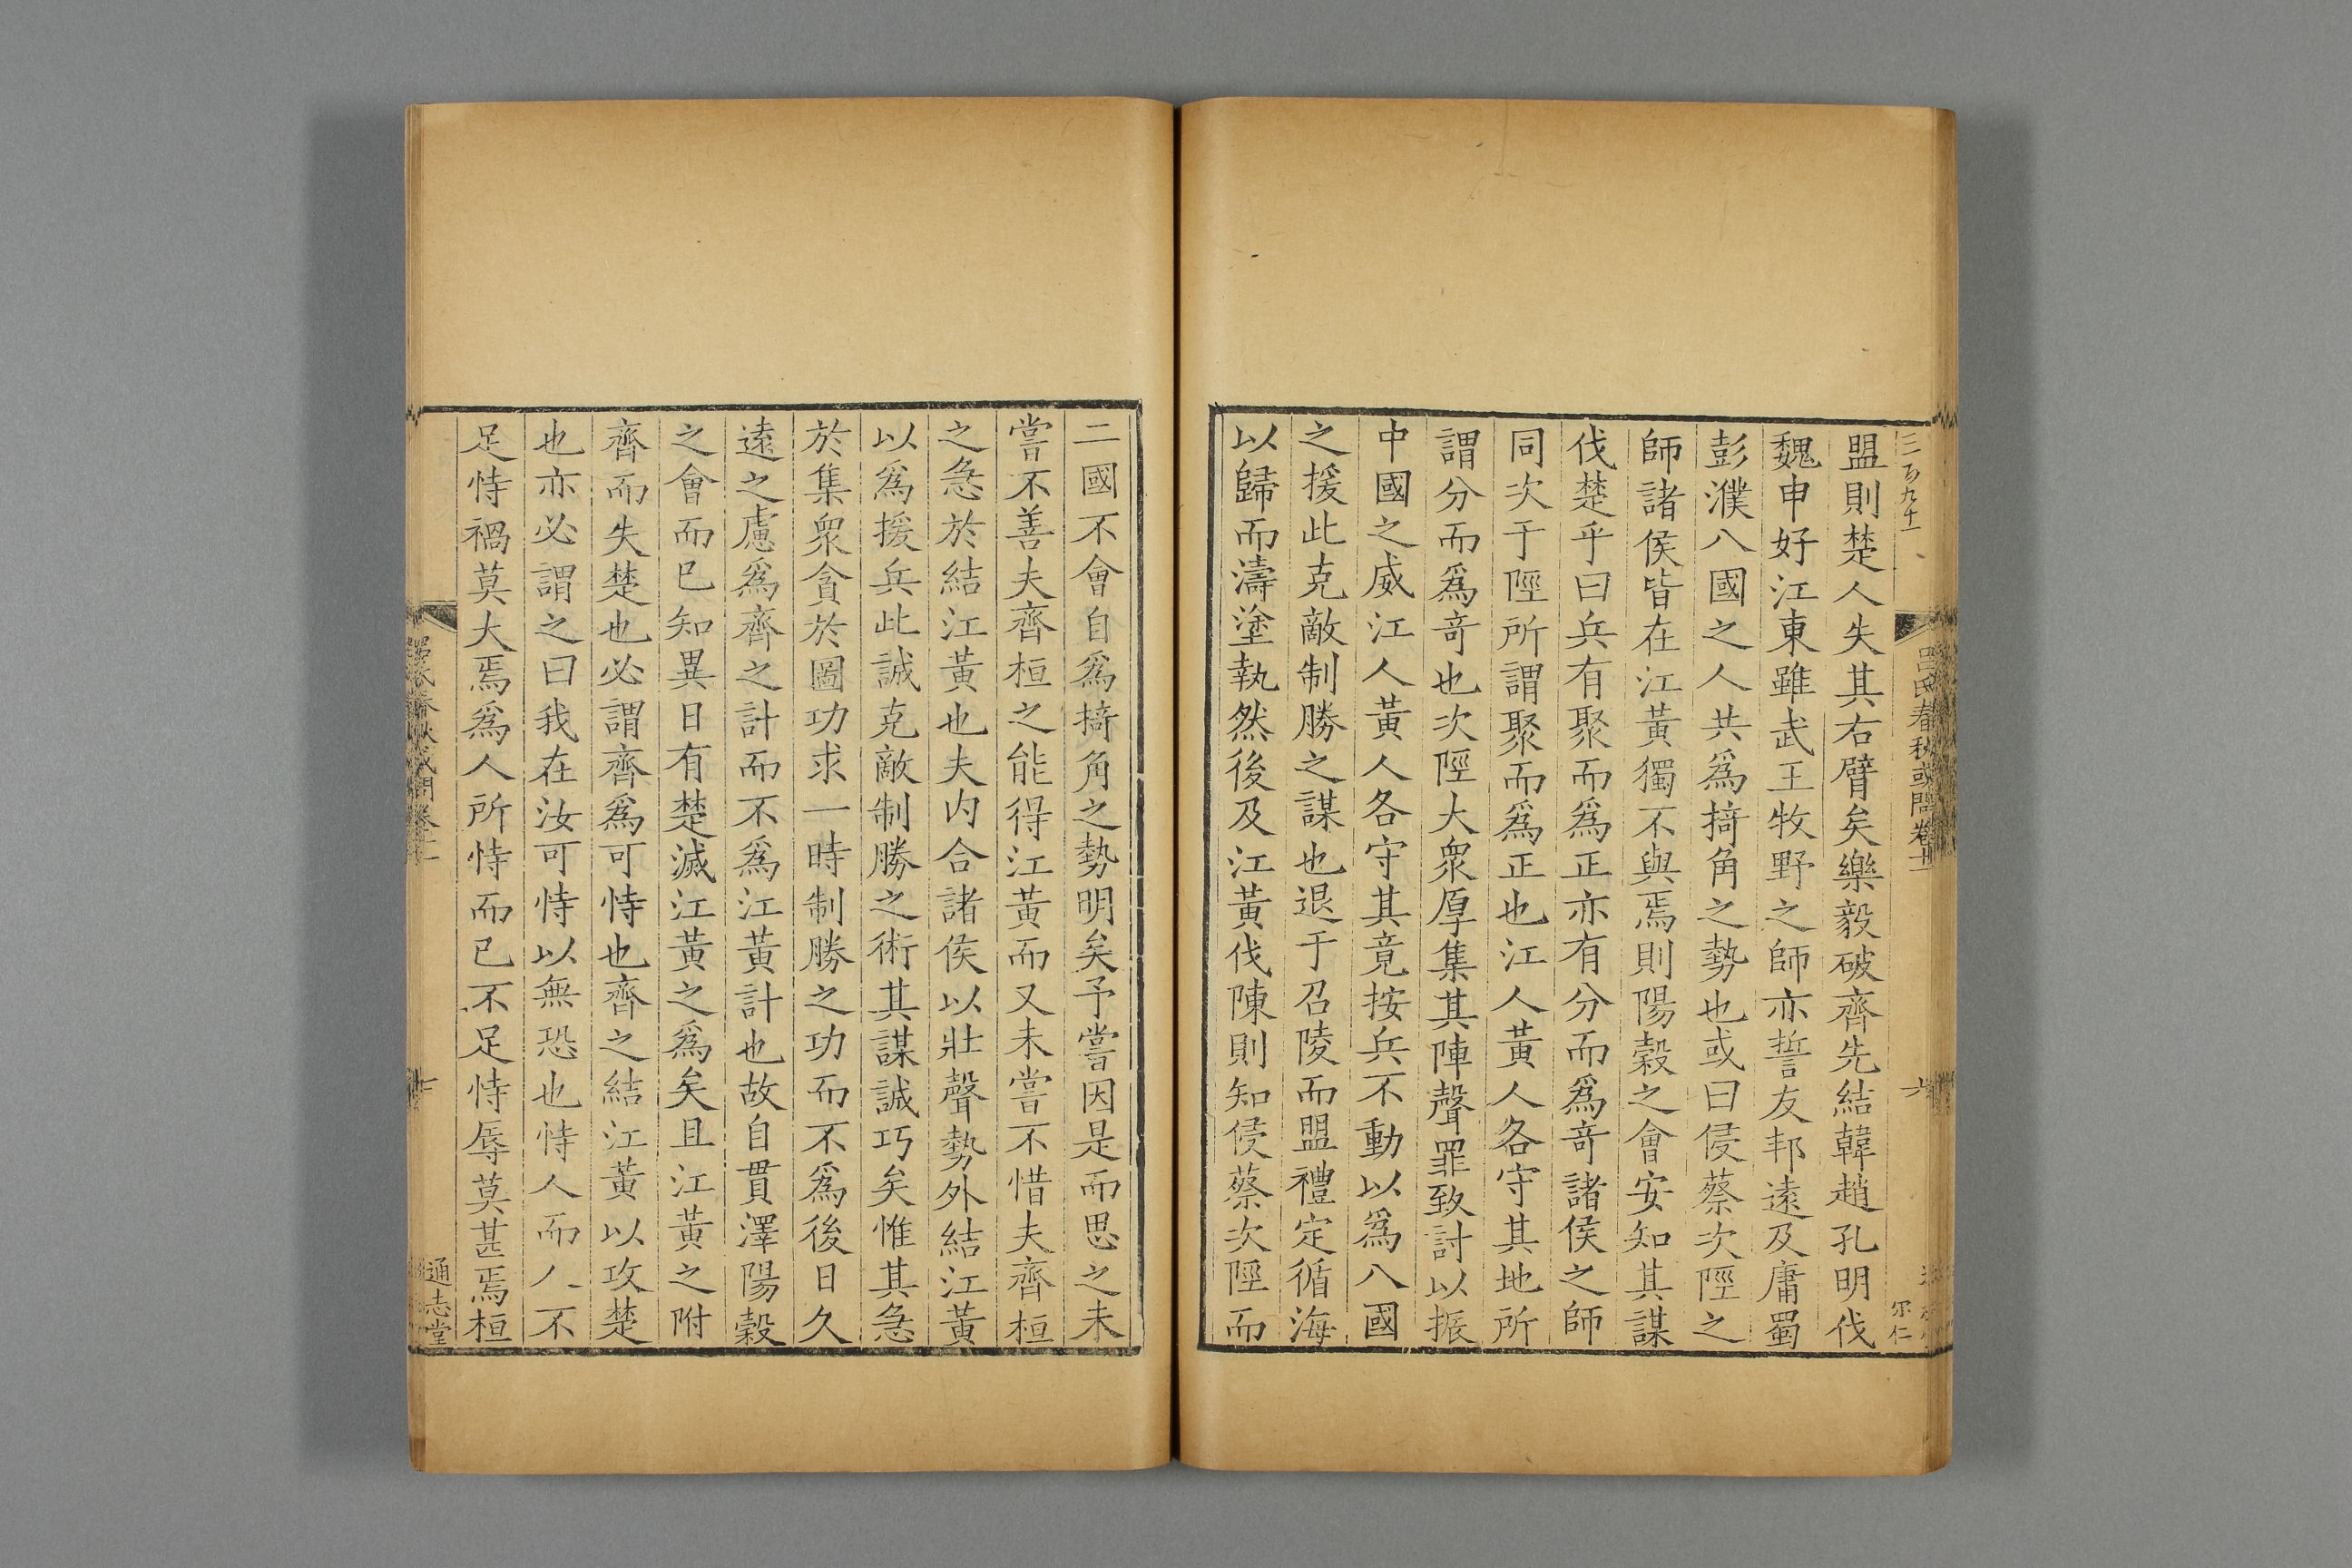 盟則楚人失其右臂矣樂毅破齊先結韓趙孔明伐
魏申好江東雖武王牧野之師亦誓友邦遠及庸蜀
彭濮八國之人共為掎角之勢也或曰侵蔡次陘之
師諸侯皆在江黃獨不與焉則陽穀之會安知其謀
伐楚乎曰兵有聚而為正亦有分而為竒諸侯之師
同次于陘所謂聚而為正也江人黃人各守其地所
謂分而為竒也次陘大衆厚集其陣聲罪致討以振
中國之威江人黃人各守其竟按兵不動以為八國
之援此克敵制勝之謀也退于召陵而盟禮定循海
以歸而濤塗執然後及江黃伐陳則知侵蔡次陘而
二國不會自為掎角之勢明矣予嘗因是而思之未
嘗不善夫齊桓之能得江黃而又未嘗不惜夫齊桓
之急於結江黃也夫内合諸侯以壯聲勢外結江黃
以為援兵此誠克敵制勝之術其謀誠巧矣惟其急
於集衆貪於圖功求一時制勝之功而不為後日久
遠之慮為齊之計而不為江黃計也故自貫澤陽穀
之會而已知異日有楚滅江黃之為矣且江黃之附
齊而失楚也必謂齊為可恃也齊之結江黃以攻楚
也亦必謂之曰我在汝可恃以無恐也恃人而人不
足恃禍莫大焉為人所恃而已不足恃辱莫甚焉桓
吕氏春秋或問卷十一
六
尔仁
七
通志堂